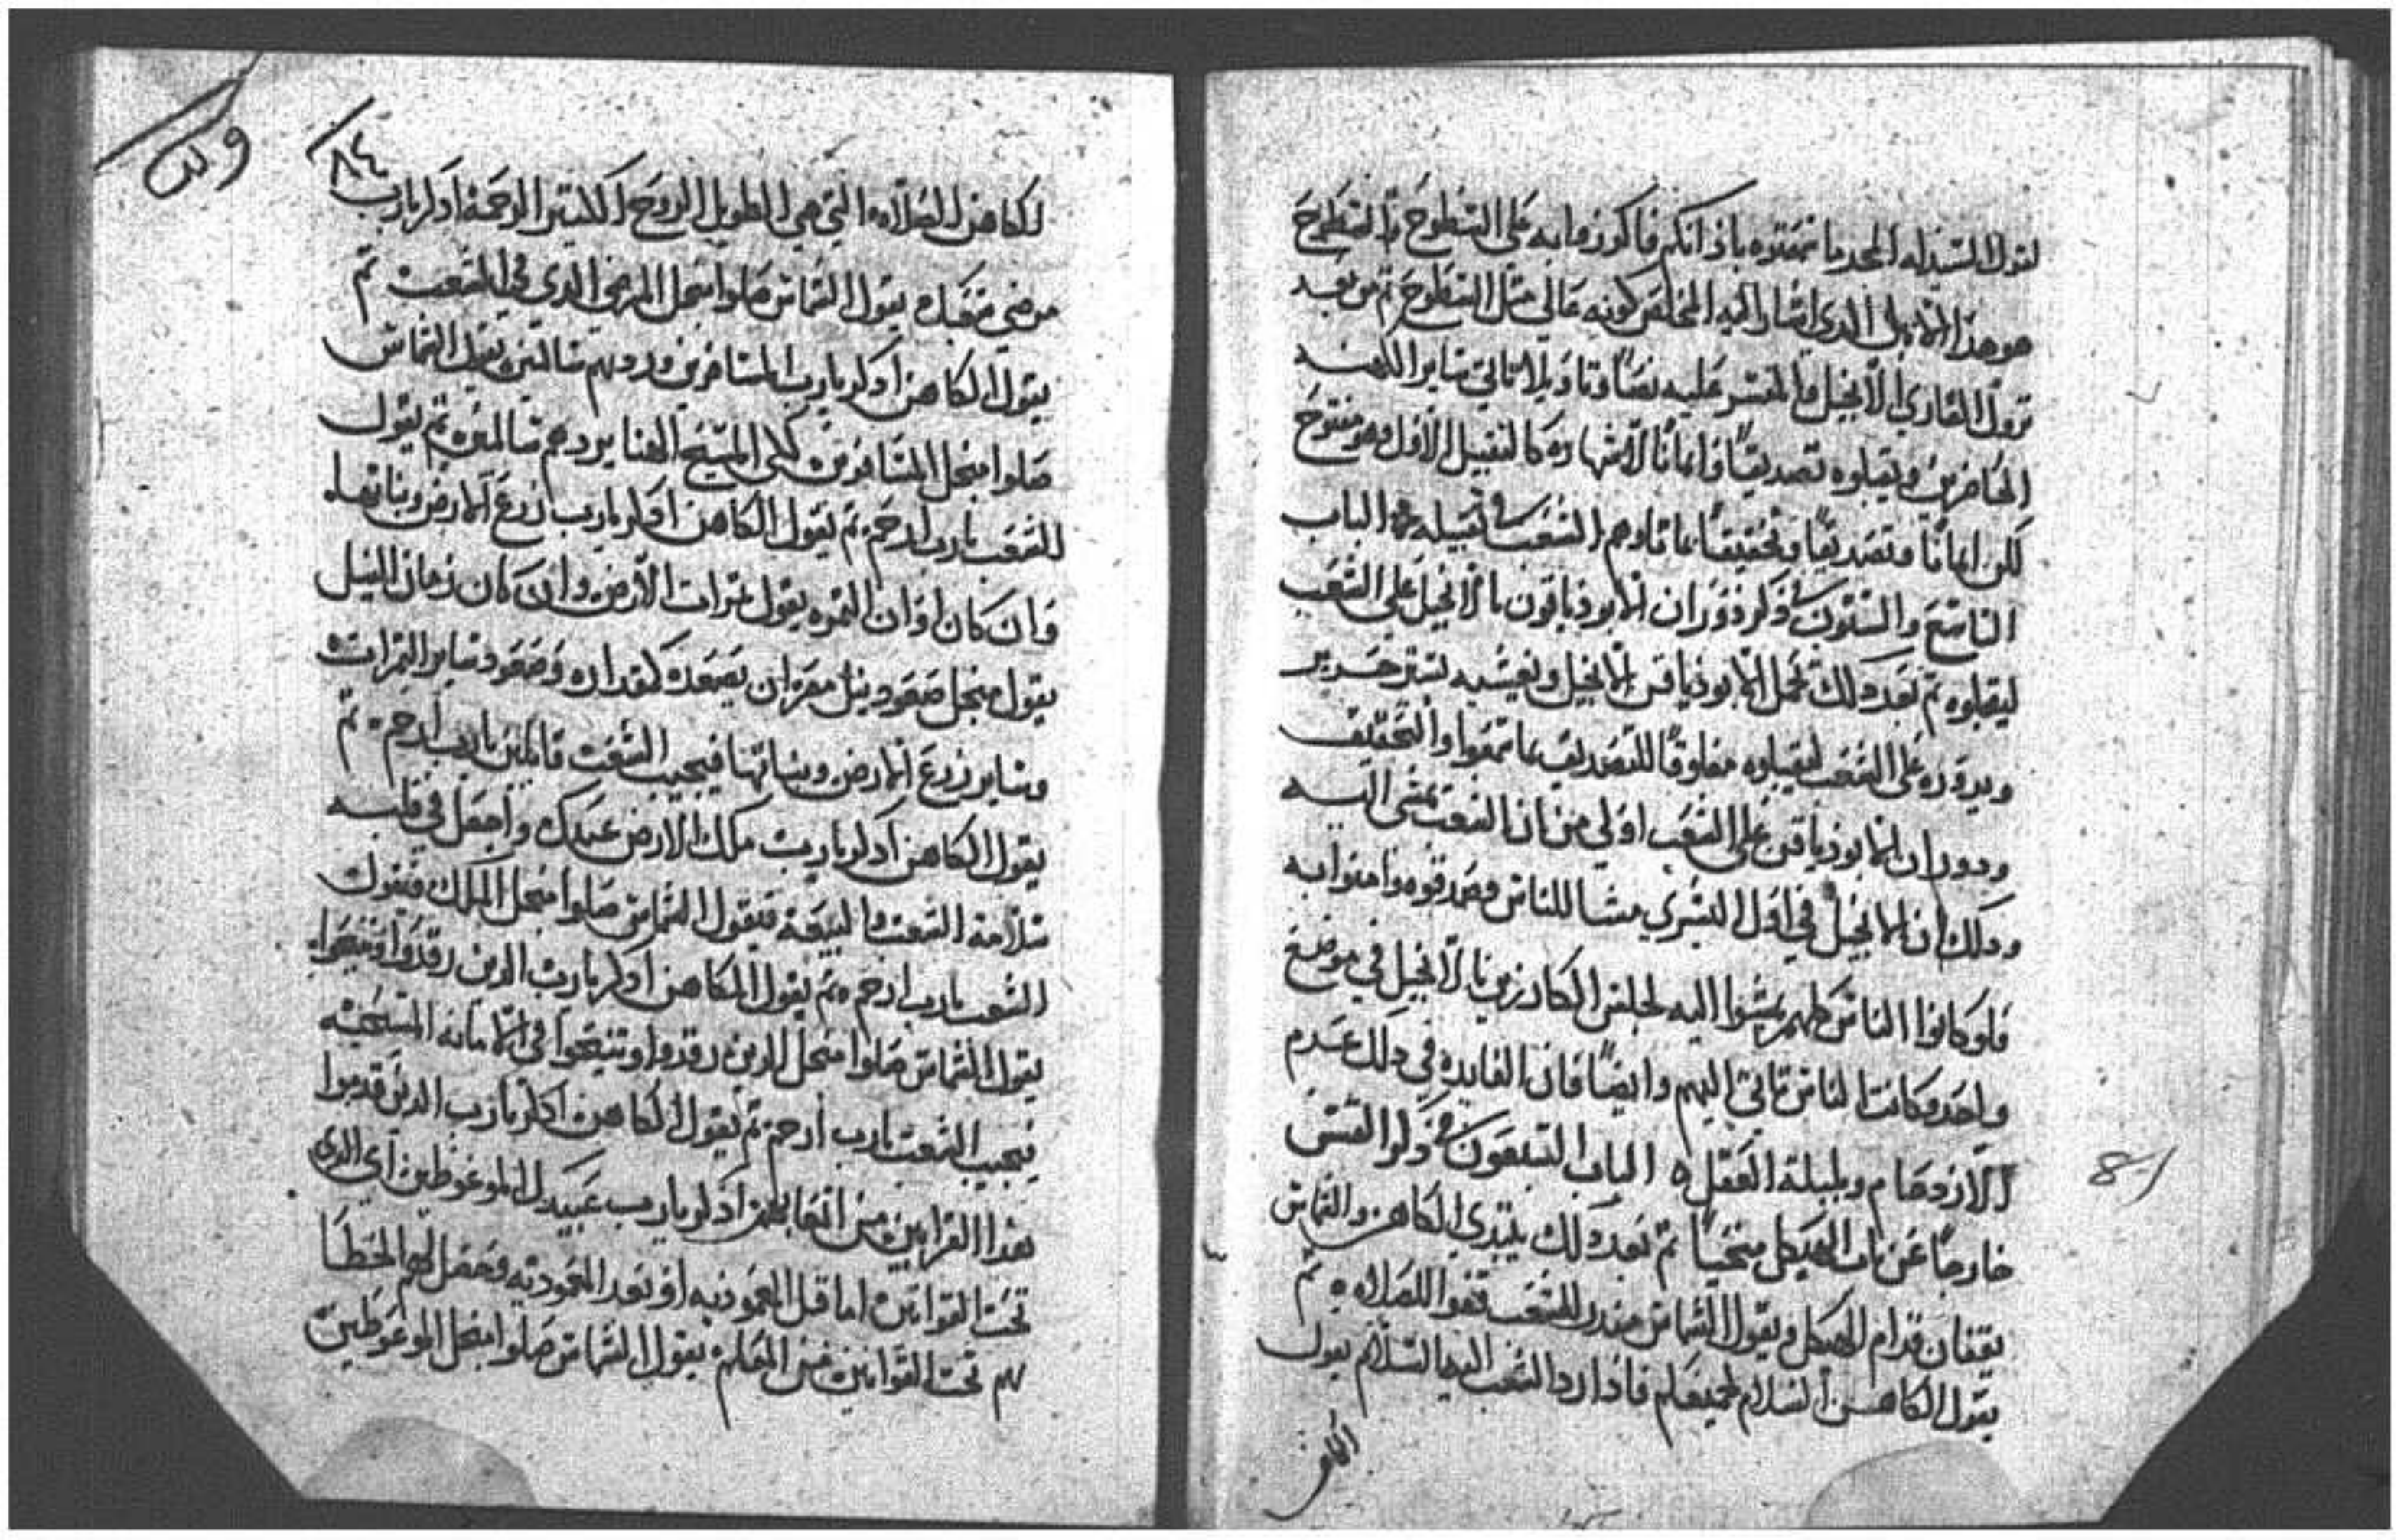 لقول السيد له المجد ما سمعتوه باذانكم فاكرزوا به على السطوح والسطوح
هو هذا الانبل الدي اشار اليه المخلص كونه عالي مثل السطوح ثم من بعد
نزول القاري الانجيل والمفسر عليه نصاً وتاويلا تاتي ساير الكهنه
الحاضرين ويقبلوه تصديقاً وايماناً لاشهاره كالتقبيل الاول وهو مفتوح
لكن ايماناً وتصديقاً وتحقيقاً بما تلاوهم الشعب في تقبيله الباب
التاسع والستون في ذكر دوران الابودياقون بالانجيل على الشعب
ليقبلوه ثم بعد دلك تحمل الابودياقن الانجيل ويغشيه بستر حرير
ويدوره على الشعب ليقبلوه مغلوقاً للتصديق بما سمعوا والتحقيق
ودوران الابودياقن على الشعب اولي من ان الشعب يمشي اليه
ودلك ان الانجيل في اول البشري مشا للناس وصدقوه وامنوا به
فلو كانوا الناس كلهم يمشوا اليه لجلس الكارزين بالانجيل في موضع
واحد وكانت الناس تاتي اليهم وايضاً فان الفايده في دلك عدم
الازدحام وبلبلة العقل ه الباب السبعون في دكر القسس
خارجاً عن باب الهيكل منحنياً ثم بعد دلك يبتدي الكاهن والشماس
يقفان قدام الهيكل ويقول الشماس منذر للشعب قفوا للصلاه ه ثم
يقول الكاهن السلام لجميعكم فاذا رد الشعب اليه السلام يقول
الكاهن
للكاهن الصلاه التي هي الطويل الروح الكثير الرحمة اذكر يارب
مرضي شعبك يقول الشماس صلوا منجل المرضي الدي في الشعب ثم
يقول الكاهن اذكر يارب المسافرين وردهم سالمين يقول الشماس
صلوا منجل المسافرين لكي المسيح الهنا يردهم سالمين ثم يقول
الشعب يارب ارحم ثم يقول الكاهن اذكر يارب زرع الارض ونباتها
وان كان اوان الثمره يقول ثمرات الارض وان كان زمان النيل
يقول منجل صعود نيل مصر ان يصعد كمقداره وصعود ساير الثمرات
وساير زرع الارض ونباتها فيجيب الشعب قايلين يارب ارحم ه ثم
يقول الكاهن اذكر يارب ملك الارض عبدك واجعل في قلبه
سلامة الشعب والبيعة فيقول الشماس صلوا منجل الملك فيقول
الشعب يارب ارحم ه ثم يقول الكاهن اذكر يارب الدين رقدوا وتنيحوا
يقول الشماس صلوا منجل الدين رقدوا وتنيحوا في الامانه المسيحيه
فيجيب الشعب يارب ارحم ثم يقول الكاهن اذكر يارب الدين قدموا
هذا القرابين من اذكر يارب عبيدك الموعوظين اي الدي
تحت القوانين اما قبل المعموديه او بعد المعموديه وحصل لهم الخطا
تحت القوانين من المعلم يقول الشماس صلوا منجل الموعوظين